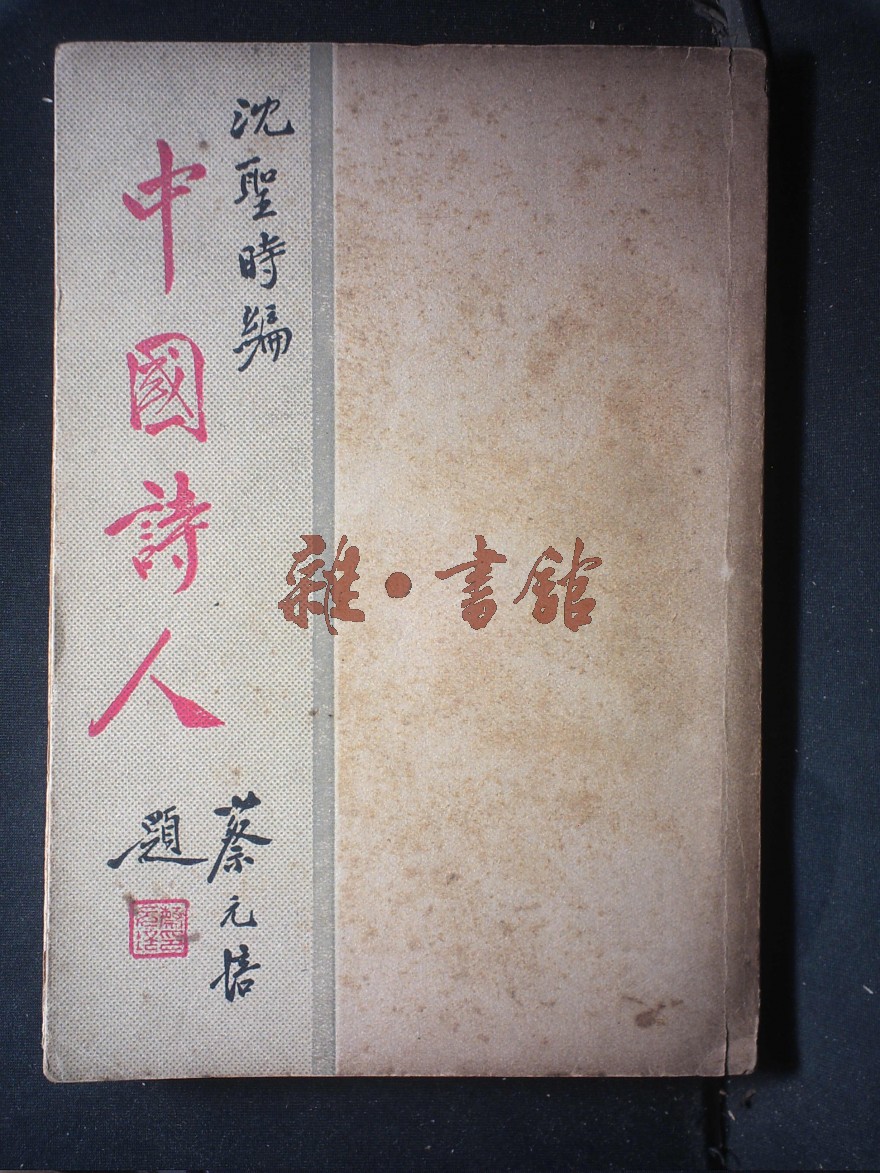 沈聖時編
中國詩人
蔡元培
題
雜•書館